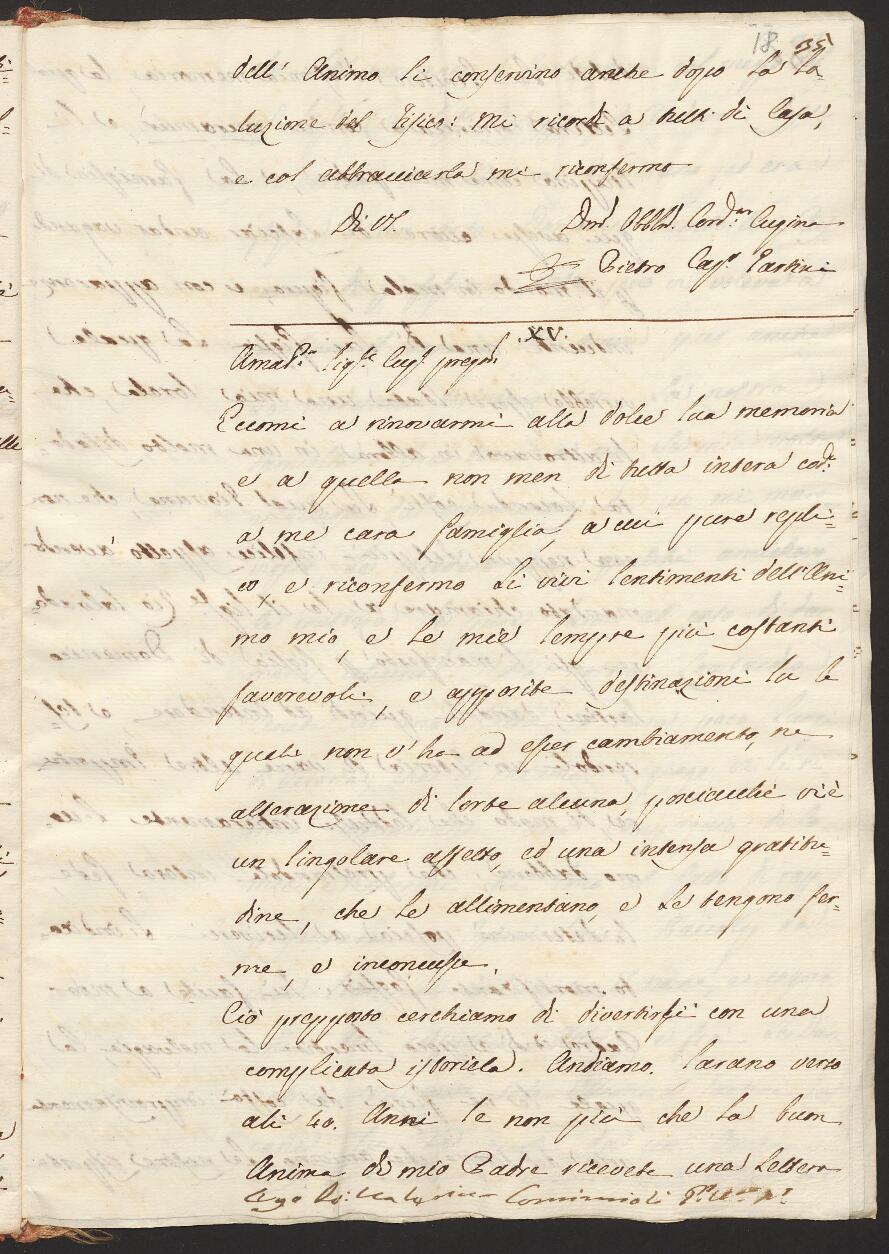 18 35
dell' Animo li conservino anche dopo la so-
luzione del Fisico: Mi ricordi a tutti di Casa,
e col abbracciarla mi riconfermo
Di VS.
Dev. Obblig. Cord.mo Cugino
Pietro Cap. Tartini
XV.
Amat.mo Sig.r Cug.o preg.
Eccomi a rinovarmi alla dolce sua memoria
e a quella non men di tutta intera cod.
a me cara famiglia, a cui pure repli-
co, e riconfermo li vivi sentimenti dell'Ani-
mo mio, e le mie sempre più costanti
favorevoli, e apposite destinazioni su le
quali non v'ha ad esser cambiamento, ne
alterazione di sorte alcuna, poiacchè vi è
un singolare affetto, ed una intensa gratitu-
dine, che le allimentano, e le tengono fer-
me, e inconcusse.
Ciò preposto cerchiamo di divertirsi con una
complicata istoriela. Andiamo. Sarano verso
ali 40. Anni se non più che la buon
Anima di mio Padre ricevete una Lettera